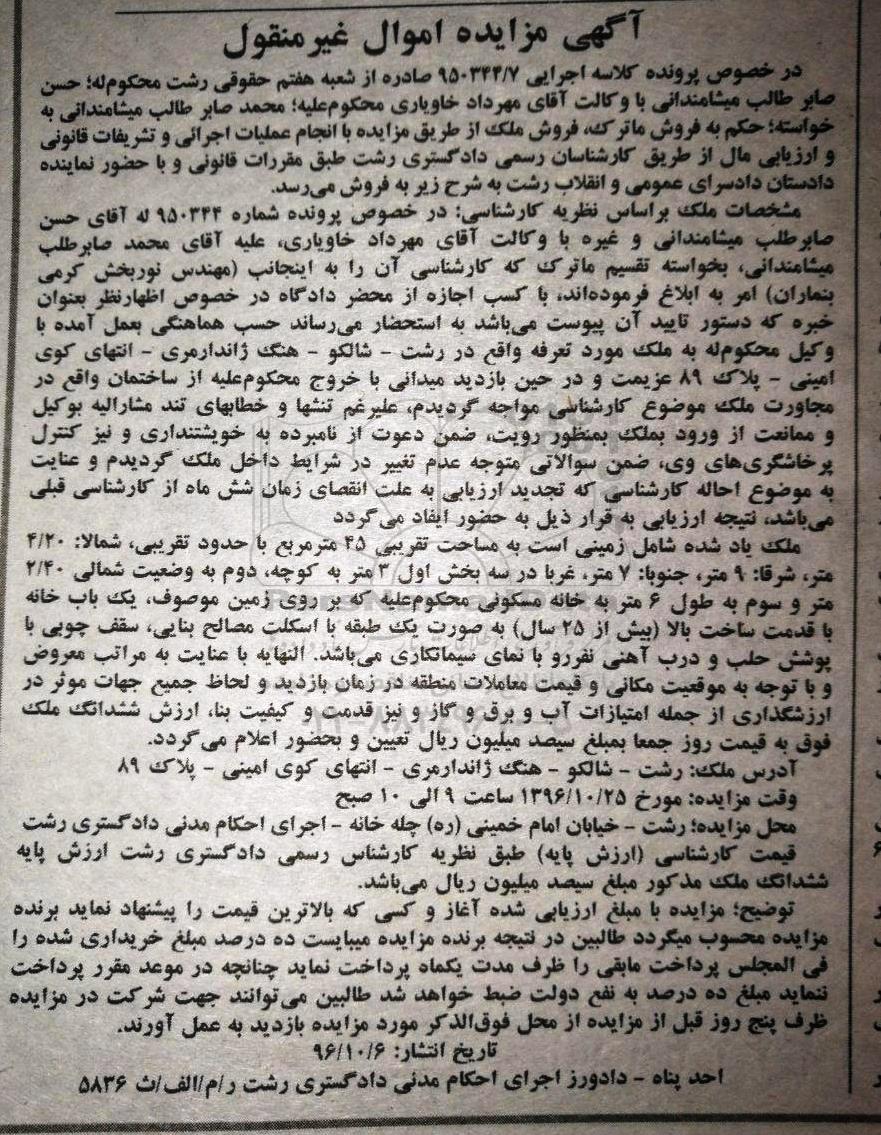 آگهی مزایده اموال غیرمنقول
در خصوص پرونده کلاسه اجرایی ۹۵۰۳۴۴/۷ صادره از شعبه هفتم حقوقی رشت محکوم‌له؛ حسن
صابر طالب میشامندانی با وکالت آقای مهرداد خاویاری محکوم‌علیه؛ محمد صابر طالب میشامندانی به
خواسته؛ حکم به فروش ماترک، فروش ملک از طریق مزایده با انجام عملیات اجرائی و تشریفات قانونی
و ارزیابی مال از طریق کارشناسان رسمی دادگستری رشت طبق مقررات قانونی و با حضور نماینده
دادستان دادسرای عمومی و انقلاب رشت به شرح زیر به فروش می‌رسد.
مشخصات ملک براساس نظریه کارشناسی: در خصوص پرونده شماره ۹۵۰۳۴۴ له آقای حسن
صابرطلب میشامندانی و غیره با وکالت آقای مهرداد خاویاری، علیه آقای محمد صابرطلب
میشامندانی، بخواسته تقسیم ماترک که کارشناسی آن را به اینجانب (مهندس نوربخش کرمی
بنماران) امر به ابلاغ فرموده‌اند، با کسب اجازه از محضر دادگاه در خصوص اظهارنظر بعنوان
خبره که دستور تایید آن پیوست می‌باشد به استحضار می‌رساند حسب هماهنگی بعمل آمده با
وکیل محکوم‌له به ملک مورد تعرفه واقع در رشت - شالکو - هنگ ژاندارمری - انتهای کوی
امینی - پلاک ۸۹ عزیمت و در حین بازدید میدانی با خروج محکوم‌علیه از ساختمان واقع در
مجاورت ملک موضوع کارشناسی مواجه گردیدم، علیرغم تنشها و خطابهای تند مشارالیه بوکیل
و ممانعت از ورود بملک بمنظور رویت، ضمن دعوت از نامبرده به خویشتنداری و نیز کنترل
پرخاشگری‌های وی، ضمن سوالاتی متوجه عدم تغییر در شرایط داخل ملک گردیدم و عنایت
به موضوع احاله کارشناسی که تجدید ارزیابی به علت انقضای زمان شش ماه از کارشناسی قبلی
می‌باشد، نتیجه ارزیابی به قرار ذیل به حضور ایفاد می‌گردد
ملک یاد شده شامل زمینی است به مساحت تقریبی ۴۵ مترمربع با حدود تقریبی، شمالا: ۴/۲۰
متر، شرقا: ۹ متر، جنوبا: ۷ متر، غربا در سه بخش اول ۳ متر به کوچه، دوم به وضعیت شمالی ۲/۴۰
متر و سوم به طول ۶ متر به خانه مسکونی محکوم‌علیه که بر روی زمین موصوف، یک باب خانه
با قدمت ساخت بالا (بیش از ۲۵ سال) به صورت یک طبقه با اسکلت مصالح بنایی، سقف چوبی با
پوشش حلب و درب آهنی نفررو با نمای سیمانکاری می‌باشد. النهایه با عنایت به مراتب معروض
و با توجه به موقعیت مکانی و قیمت معاملات منطقه در زمان بازدید و لحاظ جمیع جهات موثر در
ارزشگذاری از جمله امتیازات آب و برق و گاز و نیز قدمت و کیفیت بنا، ارزش ششدانگ ملک
فوق به قیمت روز جمعا بمبلغ سیصد میلیون ریال تعیین و بحضور اعلام می‌گردد.
آدرس ملک: رشت - شالکو - هنگ ژاندارمری - انتهای کوی امینی - پلاک ۸۹
وقت مزایده: مورخ ۱۳۹۶/۱۰/۲۵ ساعت ۹ الی ۱۰ صبح
محل مزایده؛ رشت - خیابان امام خمینی (ره) چله خانه - اجرای احکام مدنی دادگستری رشت
قیمت کارشناسی (ارزش پایه) طبق نظریه کارشناس رسمی دادگستری رشت ارزش پایه
ششدانگ ملک مذکور مبلغ سیصد میلیون ریال می‌باشد.
توضیح؛ مزایده با مبلغ ارزیابی شده آغاز و کسی که بالاترین قیمت را پیشنهاد نماید برنده
مزایده محسوب میگردد طالبین در نتیجه برنده مزایده میبایست ده درصد مبلغ خریداری شده را
فی المجلس پرداخت مابقی را ظرف مدت یکماه پرداخت نماید چنانچه در موعد مقرر پرداخت
ننماید مبلغ ده درصد به نفع دولت ضبط خواهد شد طالبین می‌توانند جهت شرکت در مزایده
ظرف پنج روز قبل از مزایده از محل فوق‌الذکر مورد مزایده بازدید به عمل آورند.
تاریخ انتشار: ۹۶/۱۰/۶
احد پناه - دادورز اجرای احکام مدنی دادگستری رشت ر/م/الف/ث ۵۸۳۶